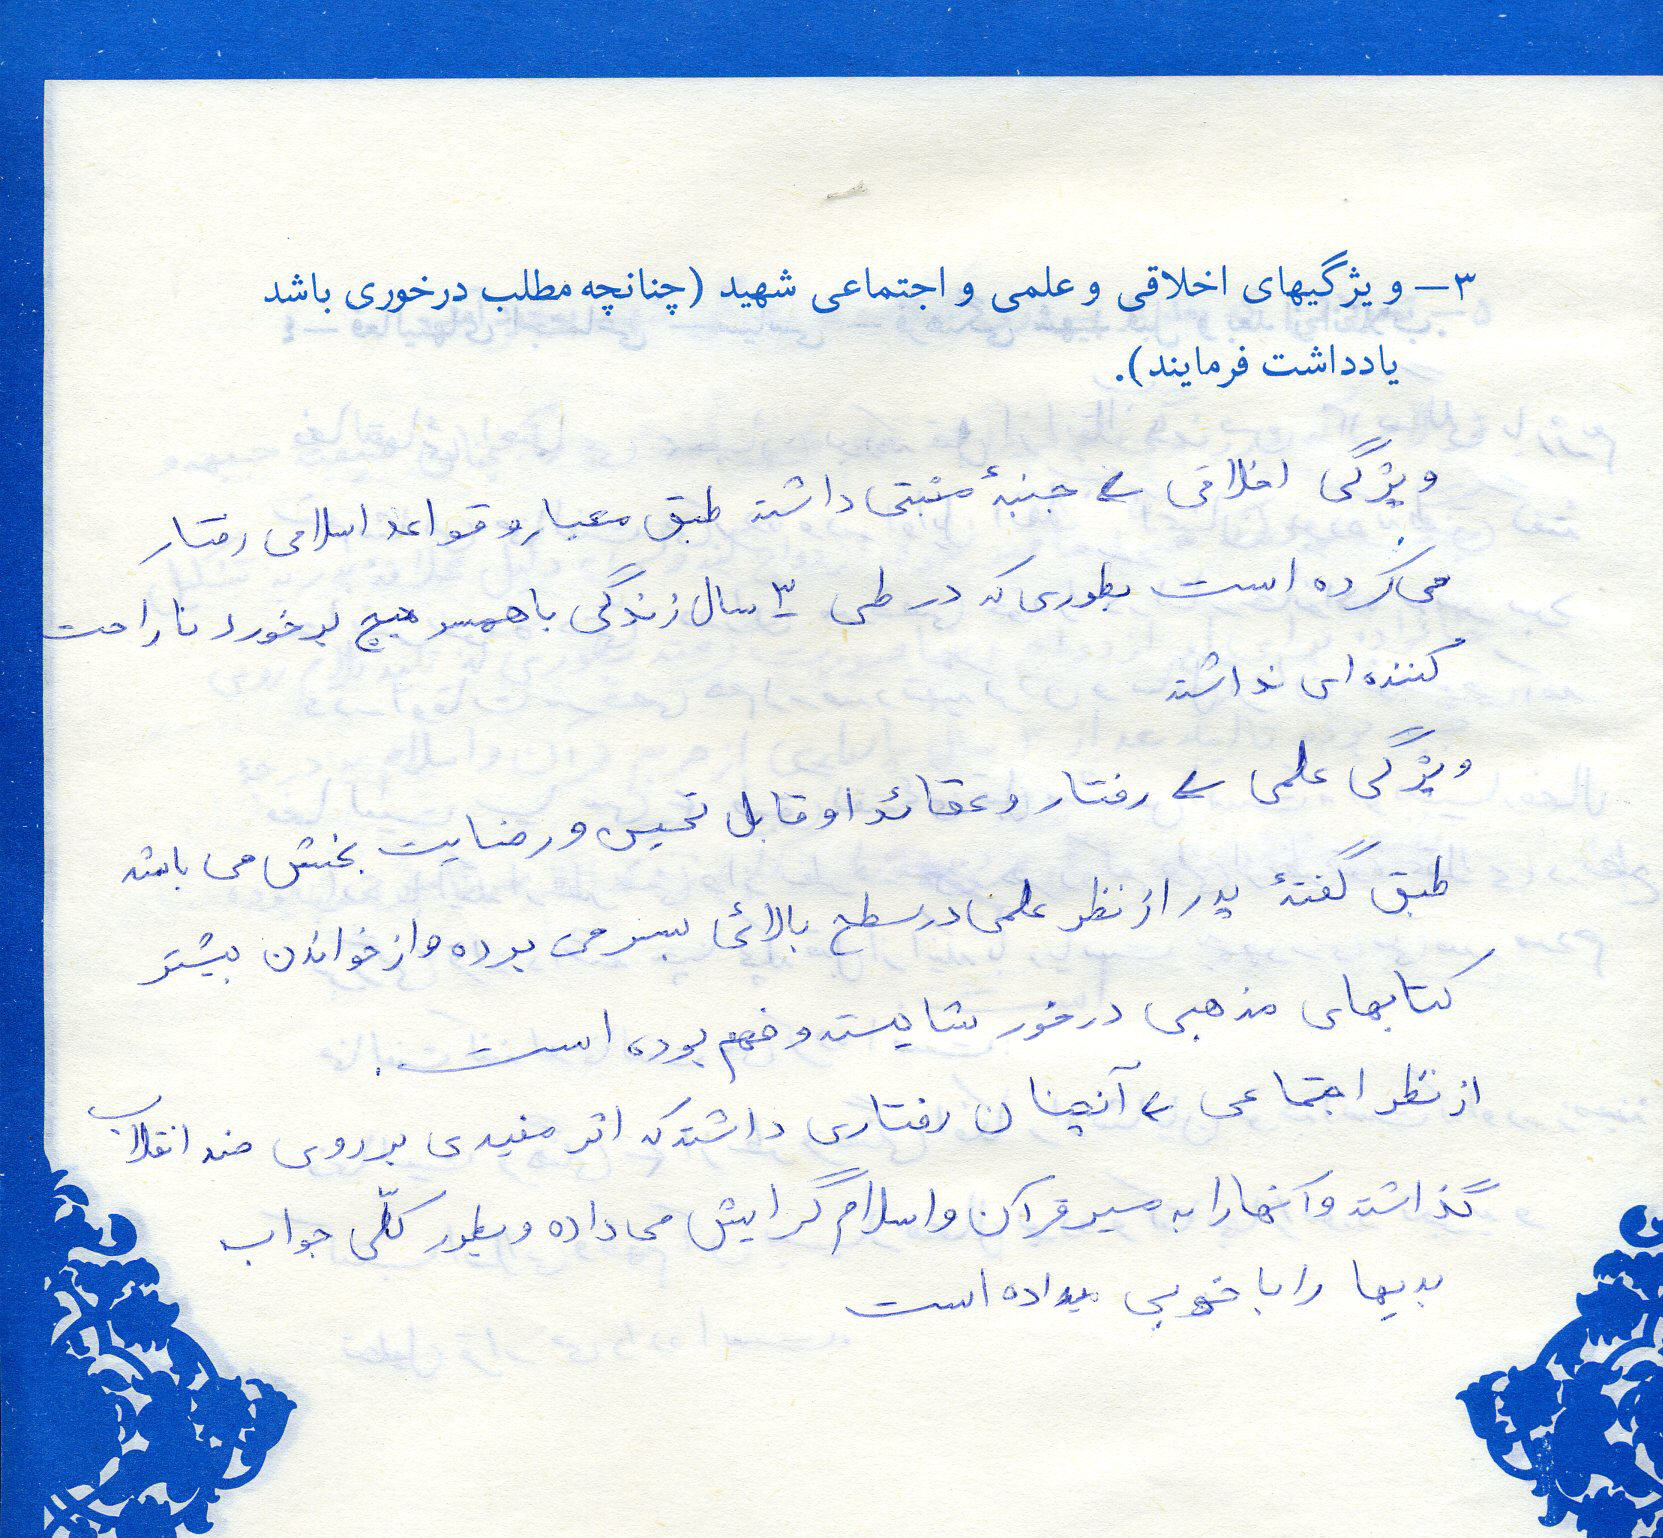 ۳– ویژگیهای اخلاقی و علمی و اجتماعی شهید (چنانچه مطلب درخوری باشد
یادداشت فرمایند).
ویژگی اخلاقی ← جنبهٔ مثبتی داشته طبق معیار و قواعد اسلامی رفتار
می‌کرده است بطوری که در طی ۳ سال زندگی با همسر هیچ برخورد ناراحت
کننده ای نداشته
ویژگی علمی ← رفتار و عقائد او قابل تحسین و رضایت بخش می باشد
طبق گفتهٔ پدر از نظر علمی در سطح بالائی بسر می برده و از خواندن بیشتر
کتابهای مذهبی درخور شایسته و فهم بوده است.
از نظر اجتماعی ← آنچنان رفتاری داشته که اثر مفیدی بر روی ضد انقلاب
گذاشته و آنها را به مسیر قرآن و اسلام گرایش می داده و بطور کلّی جواب
بدیها را با خوبی میداده است